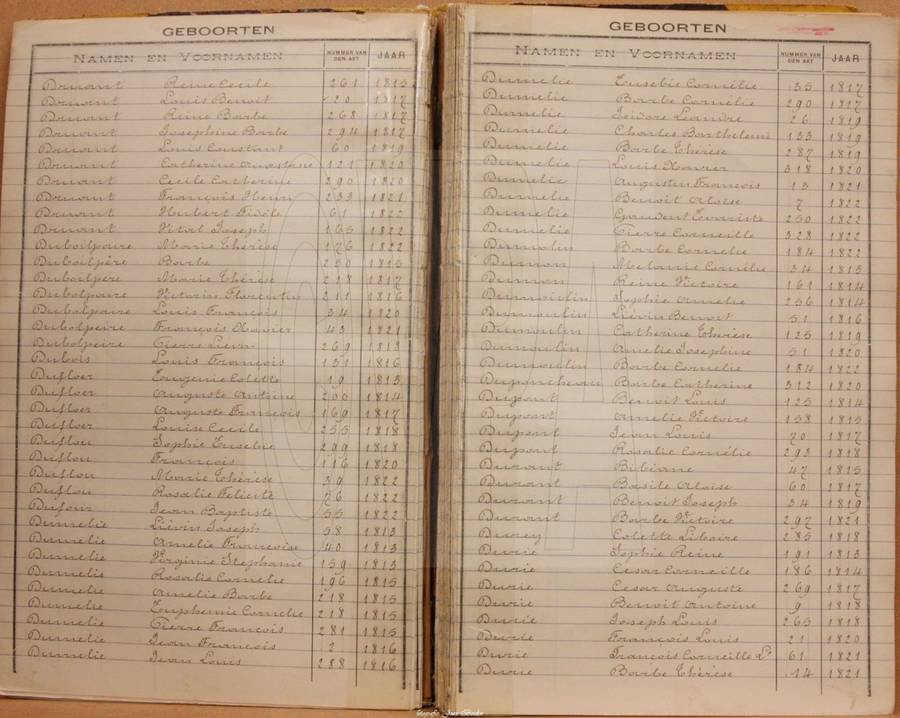 GEBOORTEN
NAMEN EN VOORNAMEN NUMMER VAN DEN AKT JAAR
Druant Reine Cecile 261 1815
Druant Louis Benoit 20 1817
Druant Reine Barbe 268 1817
Druant Josephine Barbe 294 1817
Druant Louis Constant 60 1819
Druant Catherine Anastasie 121 1820
Druant Cecile Catherine 290 1820
Druant François Henri 233 1821
Druant Hubert Fidéle 61 1822
Druant Vital Joseph 165 1822
Duboilpaire Marie Thérèse 176 1822
Duboilpère Barbe 250 1815
Duboilpere Marie Thérèse 218 1817
Dubolpaire Victorin Florentin 211 1816
Dubolpaire Louis François 34 1820
Dubolpeire François Xavier 43 1821
Dubolpeire Pierre Lievin 269 1818
Dubois Louis François 151 1816
Dufloer Eugenie Colette 19 1815
Dufloer Auguste Antoine 200 1814
Dufloer Auguste François 169 1817
Dufloer Louise Cecile 255 1818
Duflou Sophie Eusebie 299 1818
Duflou François 116 1820
Duflou Marie Thérèse 39 1822
Duflou Rosalie Felicité 76 1822
Dufour Jean Baptiste 55 1822
Dumelie Liévin Joseph 58 1813
Dumelie Amelie Françoise 40 1813
Dumelie Virginie Stephanie 159 1813
Dumelie Rosalie Cornelie 196 1815
Dumelie Amelie Barbe 218 1815
Dumelie Euphemie Cornelie 218 1815
Dumelie Pierre François 281 1815
Dumelie Jean François 2 1816
Dumelie Jean Louis 288 1816
GEBOORTEN
NAMEN EN VOORNAMEN NUMMER VAN DEN AKT JAAR
Dumelie Eusebie Cornélie 35 1817
Dumelie Barbe Cornélie 290 1817
Dumelie Isidore Leandre 26 1819
Dumelie Charles Barthelemi 133 1819
Dumelie Barbe Thérèse 287 1819
Dumelie Louis Xavier 318 1820
Dumelie Augustin François 13 1821
Dumelie Benoit Aloïse 7 1822
Dumelie Gaudent Evariste 250 1822
Dumelie Pierre Corneille 328 1822
Dumolin Barbe Cornelie 184 1822
Dumon Melanie Cornélie 34 1813
Dumon Reine Victoire 161 1814
Dumoulin Sophie Amelie 256 1814
Dumoulin Liévin Benoit 51 1816
Dumoulin Catherine Thérèse 125 1819
Dumoulin Amelie Josephine 51 1820
Dumoulin Barbe Cornelie 184 1822
Duponcheau Barbe Catherine 312 1820
Dupont Benoit Louis 125 1814
Dupont Amelie Victoire 158 1815
Dupont Jean Louis 70 1817
Dupont Rosalie Cornélie 293 1818
Durant Bibiane 47 1815
Durant Basile Aloise 60 1817
Durant Benoit Joseph 34 1819
Durant Barbe Victoire 297 1821
Durey Colette Liboire 285 1818
Durie Sophie Reine 191 1813
Durie Cesar Corneille 186 1814
Durie Cesar Auguste 269 1817
Durie Benoit Antoine 9 1818
Durie Joseph Louis 265 1818
Durie François Louis 21 1820
Durie François Corneille Ls 61 1821
Durie Barbe Thérèse 14 1821